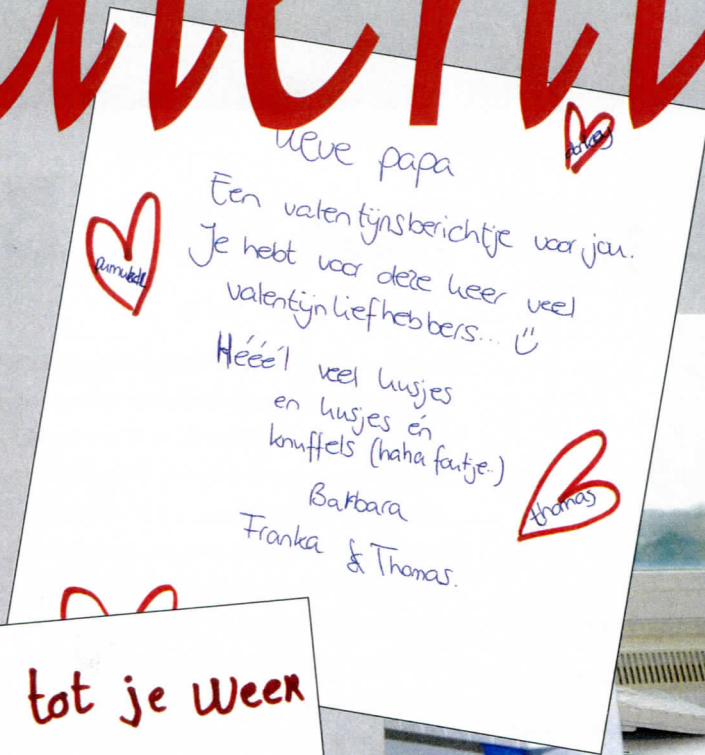 Lieve papa
Een valentijnsberichtje voor jou.
Je hebt voor deze keer veel
valentijnliefhebbers...
Hééél veel kusjes
en kusjes én
knuffels (haha foutje..)
Barbara
Franka & Thomas.
thomas
tot je weer